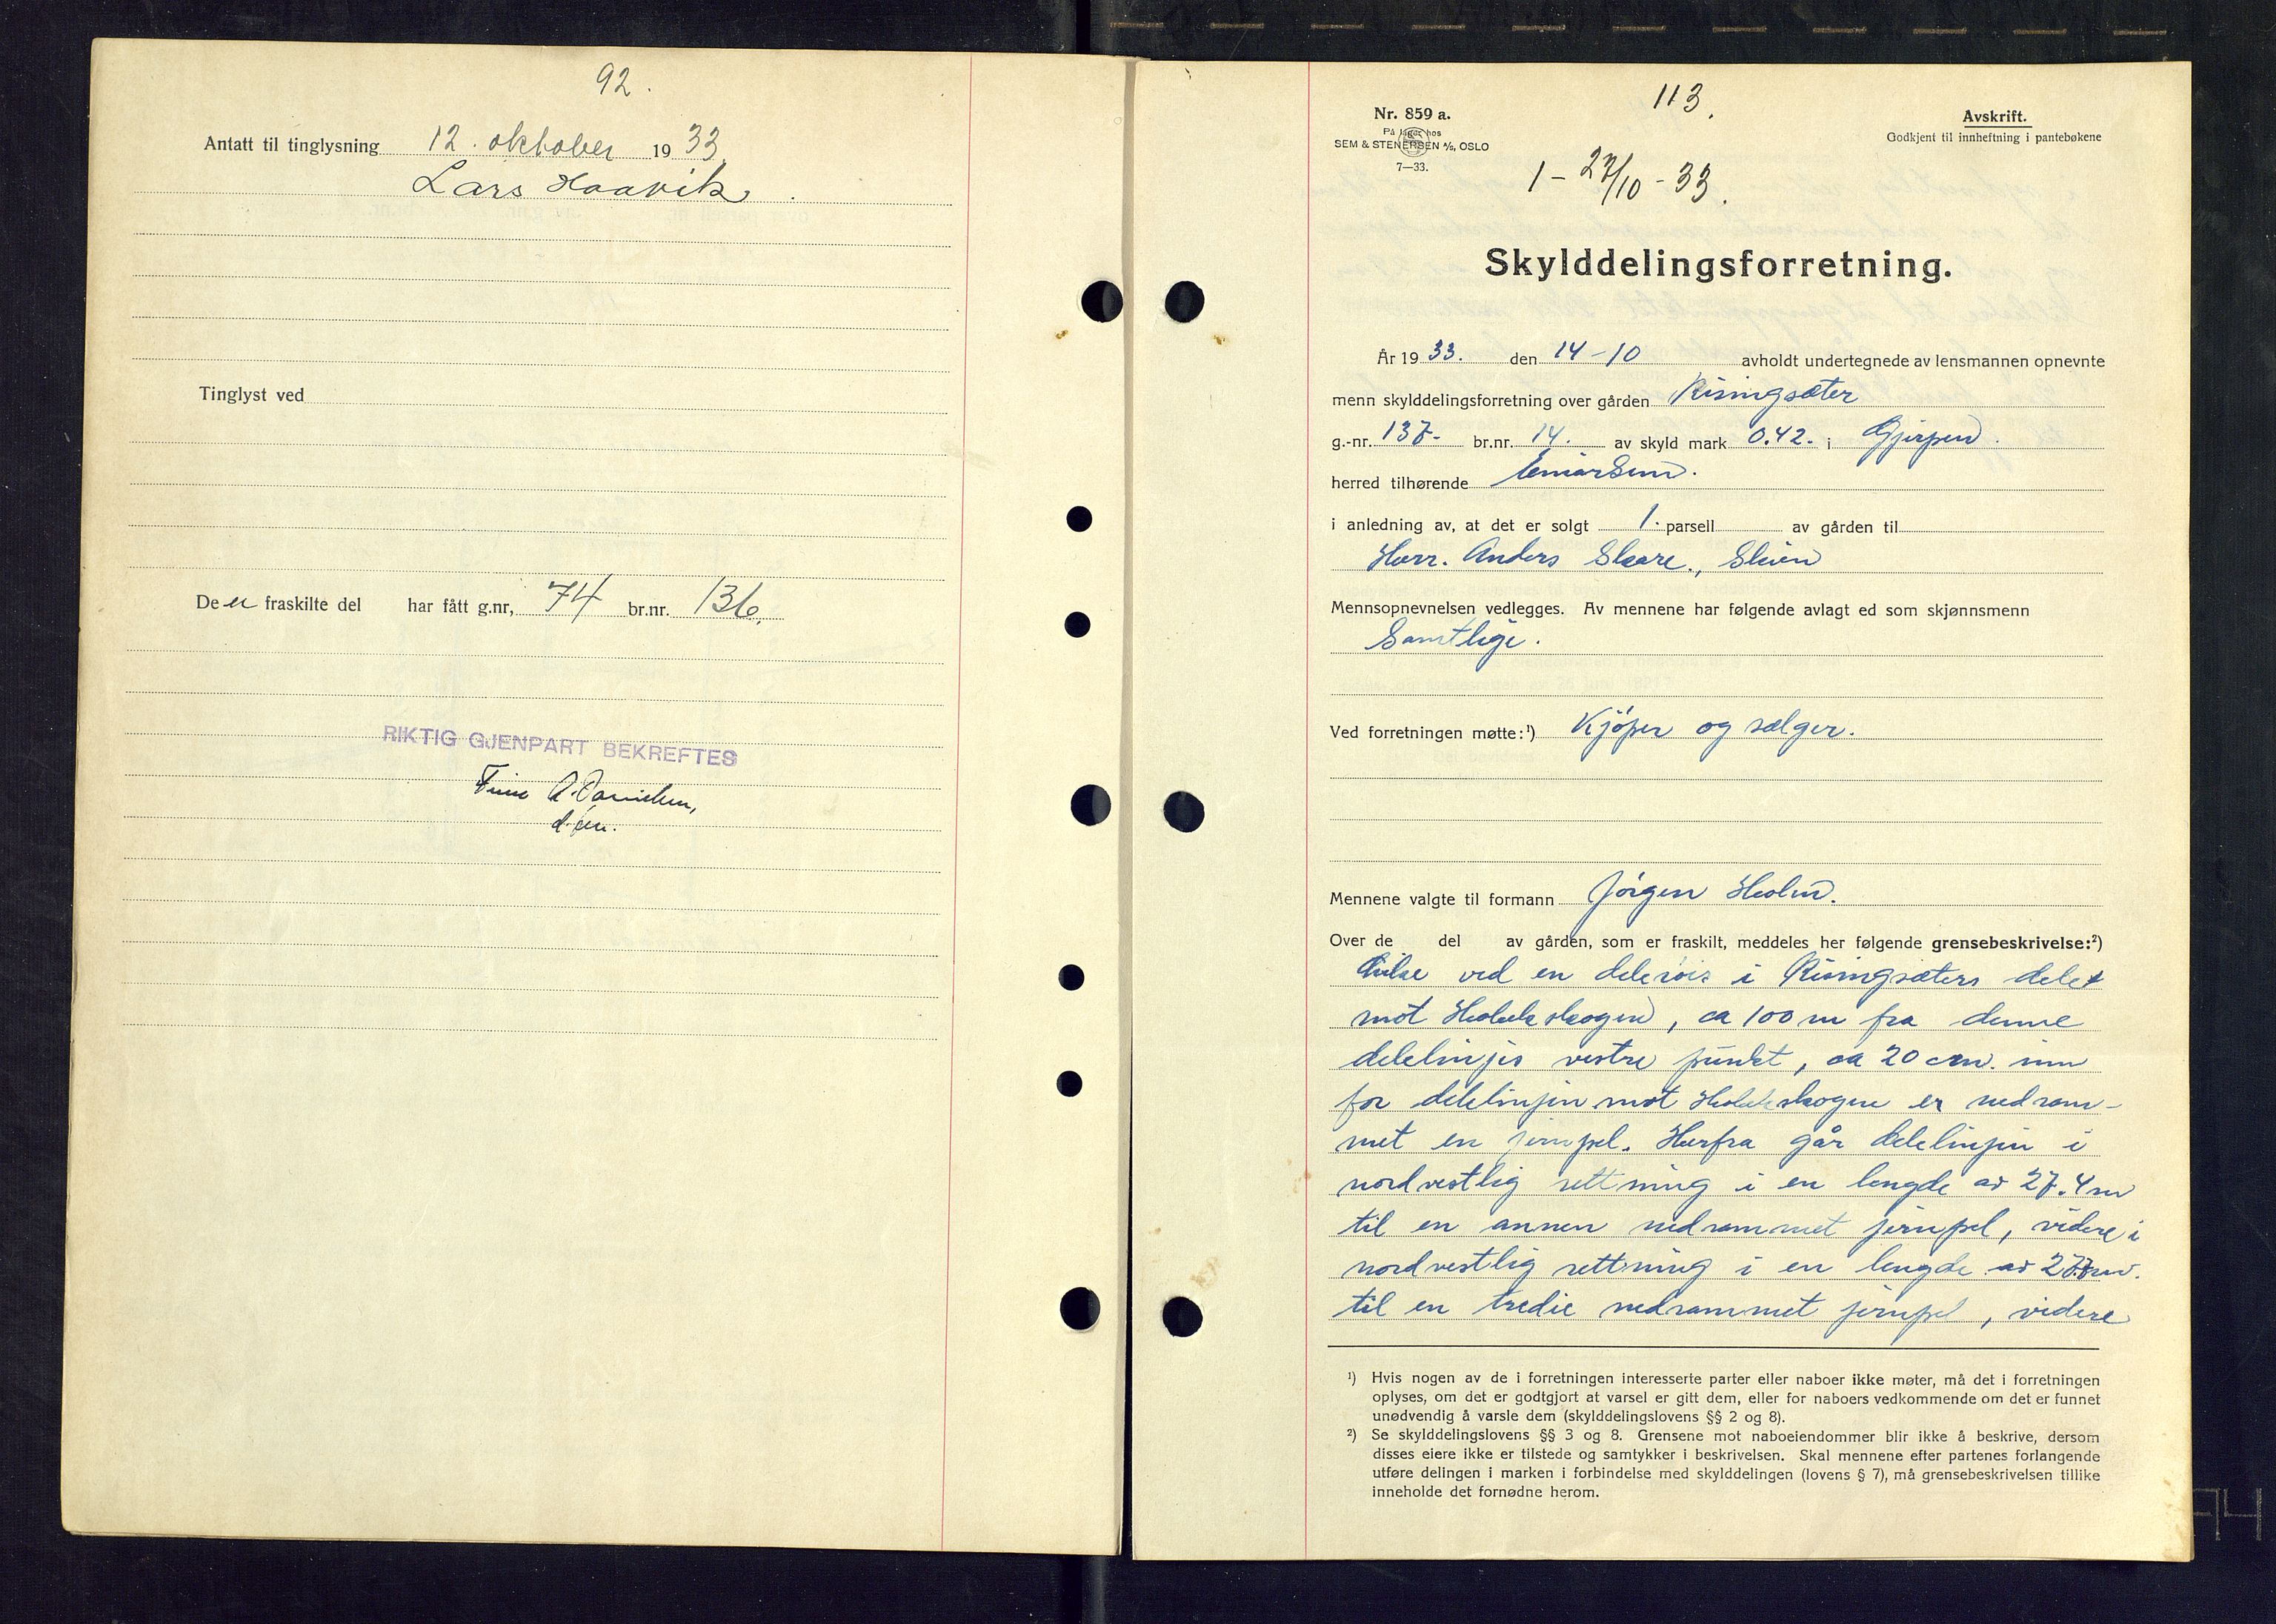 92.
Antatt til tinglysning 12. oktober 1933
Lars Haavik
Tinglyst ved
De er fraskilte del har fått g.nr, 74 br.nr. 136.
RIKTIG GJENPART BEKREFTES
113.
Nr. 859 a.
På lager hos
SEM & STENERSEN A/S, OSLO
7—33.
Avskrift.
Godkjent til innheftning i pantebøkene
1 - 27/10 - 33.
Skylddelingsforretning.
År 1933. den 14-10 avholdt undertegnede av lensmannen opnevnte
menn skylddelingsforretning over gården Risingsæter
g.-nr. 137. br.nr. 14. av skyld mark 0.42. i Gjerpen.
herred tilhørende
i anledning av, at det er solgt 1. parsell av gården til
Herr. Anders Skare., Skien
Mennsopnevnelsen vedlegges. Av mennene har følgende avlagt ed som skjønnsmenn
Samtlige.
Ved forretningen møtte:¹) Kjøper og sælger.
Mennene valgte til formann Jørgen Holm.
Over de del av gården, som er fraskilt, meddeles her følgende grensebeskrivelse:²)
ved en delerøis i Risingsæters dele
mot skogen, ca 100 m fra denne
delelinjes vestre punkt, ca 20 cm. inn
for delelinjen mot skogen er nedram-
met en jernpel. Herfra går delelinjen i
nordvestlig rettning i en lengde av 27.4 m
til en annen nedrammet jernpel, videre i
nordvestlig rettning i en lengde av
til en tredie nedrammet jernpel, videre
¹) Hvis nogen av de i forretningen interesserte parter eller naboer ikke møter, må det i forretningen
oplyses, om det er godtgjort at varsel er gitt dem, eller for naboers vedkommende om det er funnet
unødvendig å varsle dem (skylddelingslovens §§ 2 og 8).
²) Se skylddelingslovens §§ 3 og 8. Grensene mot naboeiendommer blir ikke å beskrive, dersom
disses eiere ikke er tilstede og samtykker i beskrivelsen. Skal mennene efter partenes forlangende
utføre delingen i marken i forbindelse med skylddelingen (lovens § 7), må grensebeskrivelsen tillike
inneholde det fornødne herom.